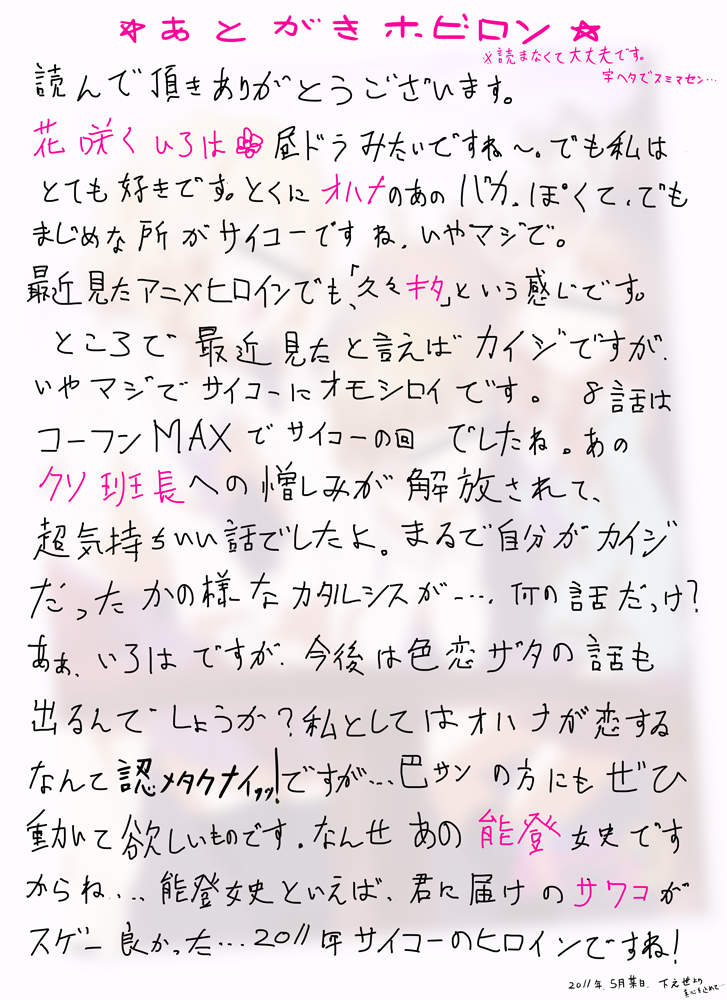 ☆あとがきホビロン☆
※読まなくて大丈夫です。
字ヘタでスミマセン…
読んで頂きありがとうございます。
花咲くいろは 昼ドラみたいですね～。でも私は
とても好きです。とくにオハナのあのバカっぽくて、でも
まじめな所がサイコーですね、いやマジで。
最近見たアニメヒロインでも、「久々キタ」という感じです。
ところで最近見たと言えばカイジですが、
いやマジでサイコーにオモシロイです。 8話は
コーフンMAXでサイコーの回でしたね。あの
クソ班長への憎しみが解放されて、
超気持ちいい話でしたよ。まるで自分がカイジ
だったかの様なカタルシスが…、何の話だっけ?
あぁ、いろはですが、今後は色恋ザタの話も
出るんでしょうか?私としてはオハナが恋する
なんて認メタクナイッッ!ですが…巴サンの方にもぜひ
動いて欲しいものです。なんせあの能登女史です
からね…、能登女史といえば、君に届けのサワコが
スゲー良かった…2011年サイコーのヒロインですね!
2011年、5月某日、下